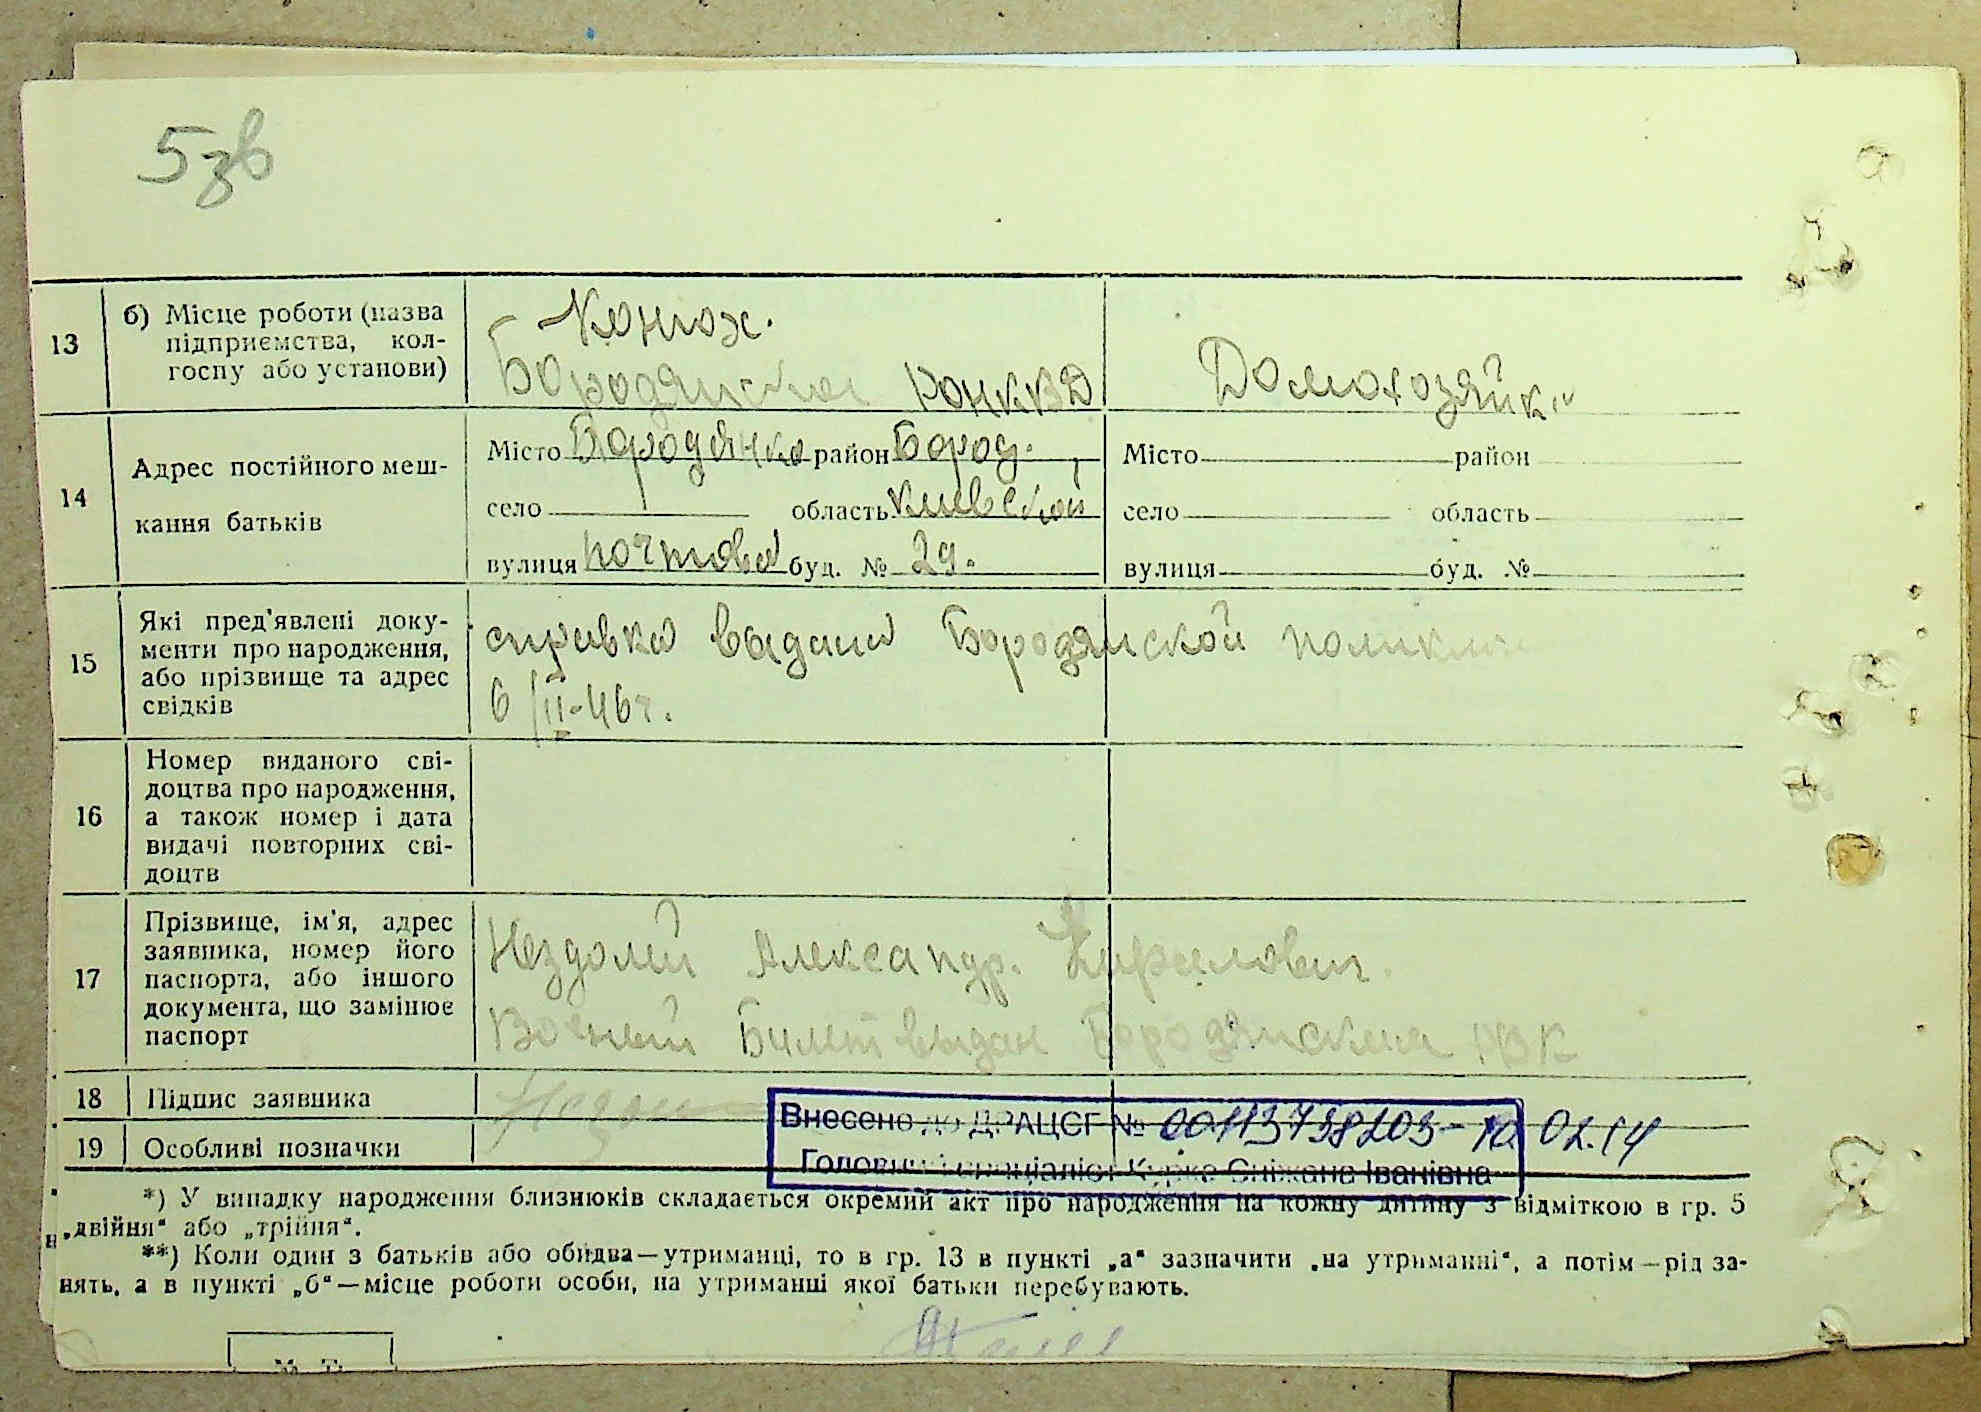 5зв
13
б) Місце роботи (назва
підприємства, кол-
госпу або установи)
Конюх.
Бородянское РОНКВД
Домохозяйк
14
Адрес постійного меш-
кання батьків
Місто Бородянка район Бород.
село область Киевской
вулиця почтова буд. № 29.
Місто район
село область
вулиця буд. №
15
Які пред'явлені доку-
менти про народження,
або прізвище та адрес
свідків
справка выдана Бородянской поликли
6/II-46 г.
16
Номер виданого сві-
доцтва про народження,
а також номер і дата
видачі повторних сві-
доцтв
17
Прізвище, ім'я, адрес
заявника, номер його
паспорта, або іншого
документа, що замінює
паспорт
Нездолий Александр. Кирилович.
Военый Билет выдан Бородянским РВК
18
Підпис заявника
19
Особливі позначки
Внесено до ДРАЦСГ № 00113738203 - 10.02.14
Головний спеціаліст Курка Сніжана Іванівна
*) У випадку народження близнюків складається окремий акт про народження на кожну дитину з відміткою в гр. 5
„двійня“ або „трійня“.
**) Коли один з батьків або обидва—утриманці, то в гр. 13 в пункті „а“ зазначити „на утриманні“, а потім—рід за-
нять, а в пункті „б“—місце роботи особи, на утриманні якої батьки перебувають.